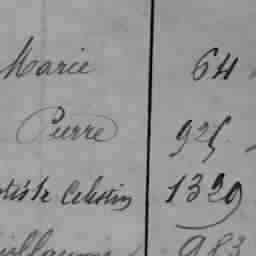 Marie 64
Pierre 925
tiste Celestin 1329
Guillaume 983